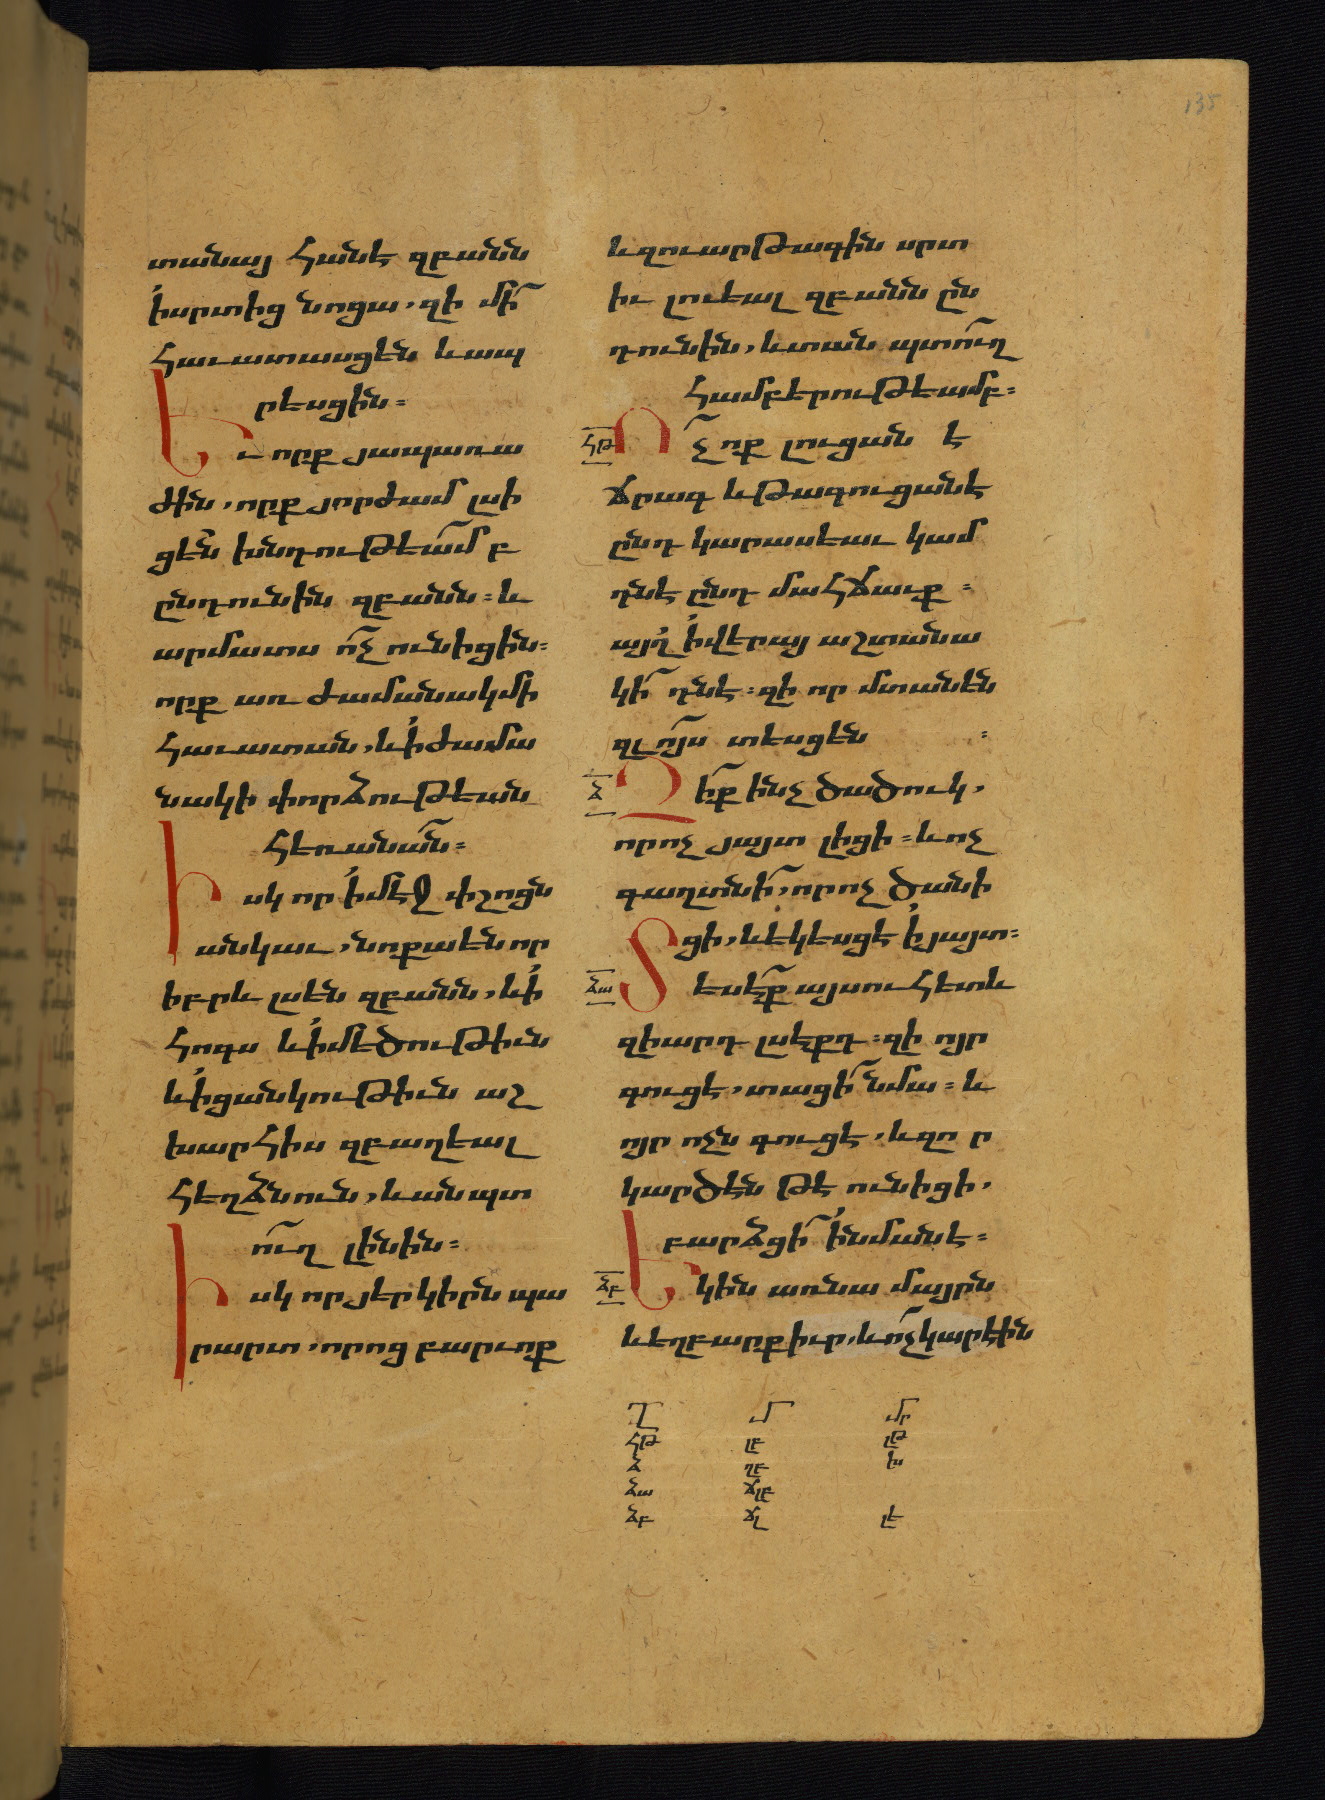 տանայ հանէ զբանն
ի սրտից նոցա, զի մի՛
հաւատասցեն և ապ
րեսցին։
Եւ որք յապառա
ժին, որք յորժամ լսի
ցեն խնդութեամբ
ընդունին զբանն։ և
արմատս ո՛չ ունիցին։
որք առ ժամանակ մի
հաւատան, և ի ժամա
նակի փորձութեան
հեռանան։
Իսկ որ ի մէջ փշոցն
անկաւ, նոքա են որ
իբրև լսեն զբանն, և ի
հոգս և ի մեծութիւն
և ի ցանկութիւն աշ
խարհիս զբաղեալ
հեղձնուն, և անպտ
ուղ լինին։
Իսկ որ յերկիրն պա
րարտ, որոց բարւոք
և զուարթագին սրտ
իւ լուեալ զբանն ըն
դունին, և տան պտուղ
համբերութեամբ։
ՀԹ Ոչ ոք լուցանէ
ճրագ և թագուցանէ
ընդ կարասեաւ կամ
դնէ ընդ մահճաւք։
այլ ի վերայ աշտանա
կի դնէ։ զի որ մտանեն
զլոյս տեսցեն։
Ձ Զի չիք ինչ ծածուկ,
որ ոչ յայտ լիցի։ և ոչ
գաղտնի, որ ոչ ծանի
ցի, և եկեսցէ ի յայտ։
ՁԱ Տեսէք այսուհետև
զիարդ լսէքդ։ զի ոյր
գուցէ, տացի նմա։ և
ոյր ոչն գուցէ, և զոր
կարծէն թէ ունիցի,
բարձցի ի նմանէ։
ՁԲ Եկին առ նա մայրն
և եղբարք իւր, և ո՛չ կարէին
Ղ Մ Մր
ՀԹ ԼԲ ԼԹ
Ձ ՂԲ Խ
ՁԱ ՃԼԲ
ՁԲ ՃԼ ԼԵ
135